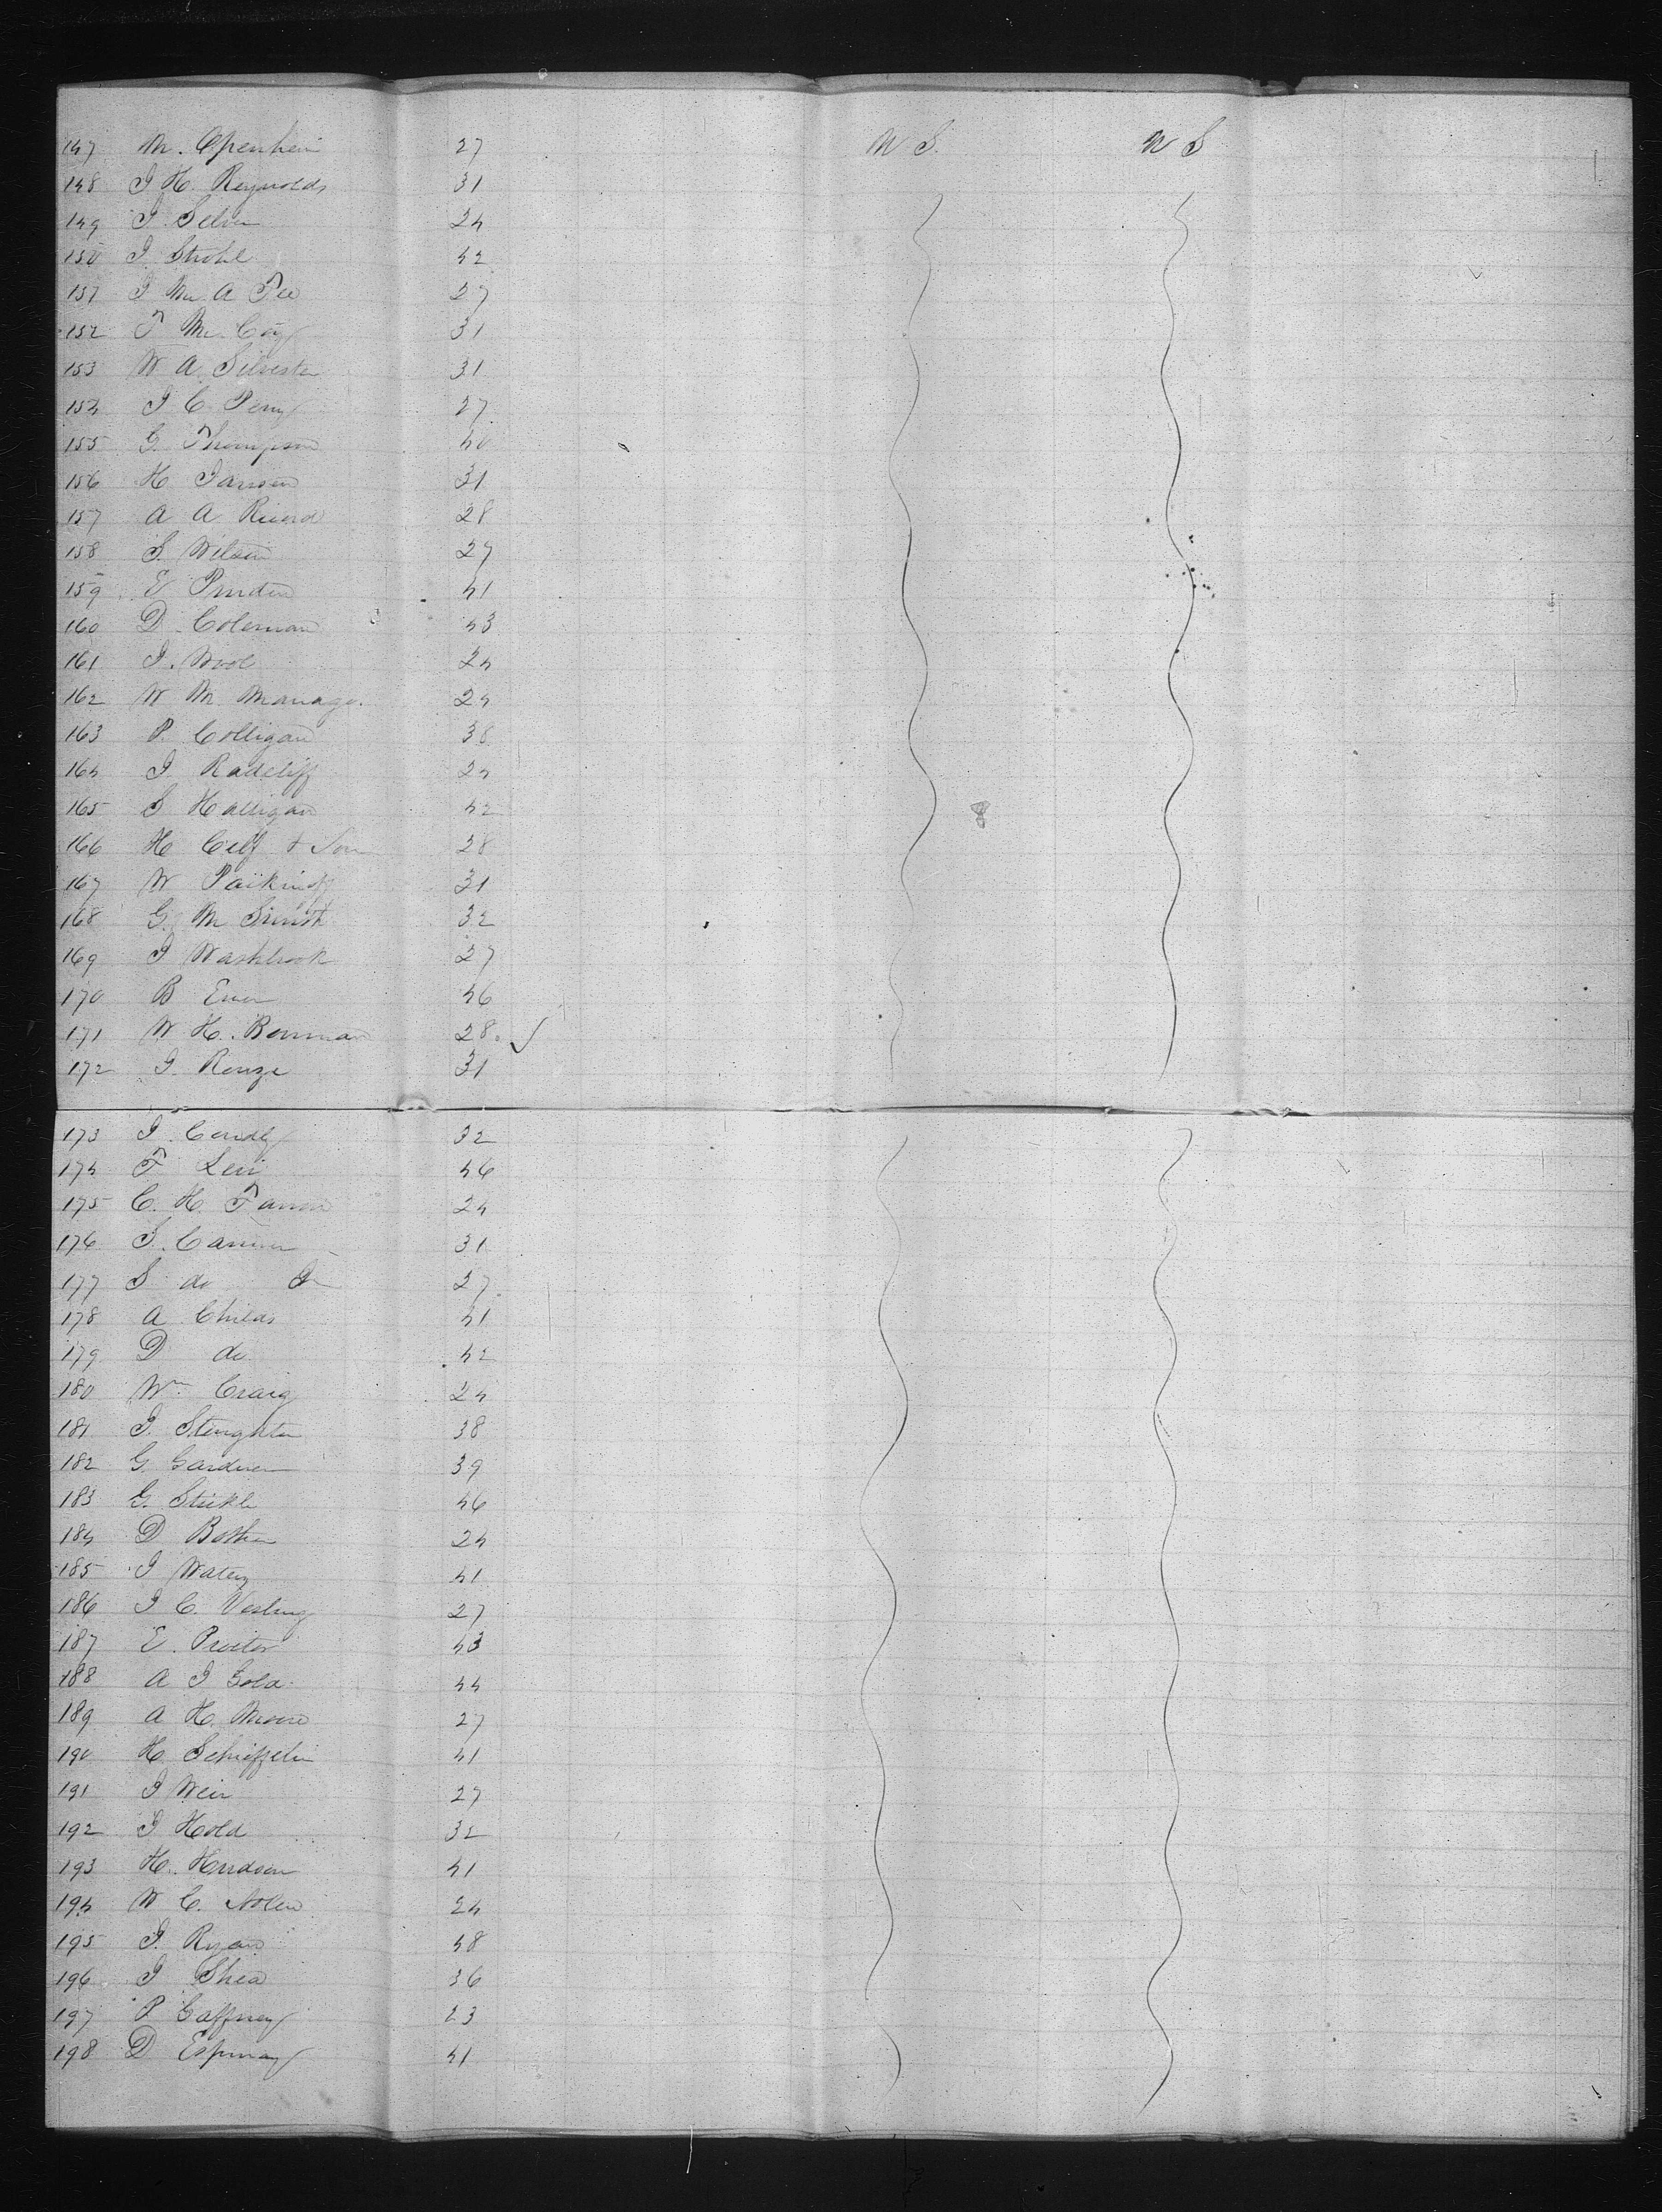 147 M. Openheim 27 N S. N S
148 J H. Reynolds 31
149 J. Selver 24
150 J. Strohl 42
151 J Mc A Fee 27
152 T Mc Coy 31
153 W A. Silvester 31
154 J C. Perry 27
155 G. Thompson 40
156 H Jansen 31
157 A A. 28
158 S. Wilson 27
159 E Pruden 41
160 D. Coleman 43
161 J. Wool 24
162 W M. Manage. 24
163 P. Colligan 38
164 J. Radcliff 24
165 S Halligan 42
166 H Celf & Son 28
167 W 31
168 G. M 32
169 J Washbrook 27
170 B 46
171 W H. Bowman 28.
172 J. Renze 31
173 J. 32
174 F Levi 46
175 C. H. 24
176 S. 31
177 S do Jr 27
178 A Childs 41
179 D do 42
180 Wm Craig 24
181 J. Stoughten 38
182 G. Gardner 39
183 G. Stickle 46
184 D 24
185 J Waters 41
186 J C. 27
187 E. Proctor 43
188 A J Gold 44
189 A H. Moore 27
190 H. Schieffelin 41
191 J Weir 27
192 J Hold 32
193 H. Hudson 41
194 W C. Nolen 24
195 J. Ryan 48
196 J Shea 36
197 P Caffrey 23
198 D Espinay 41